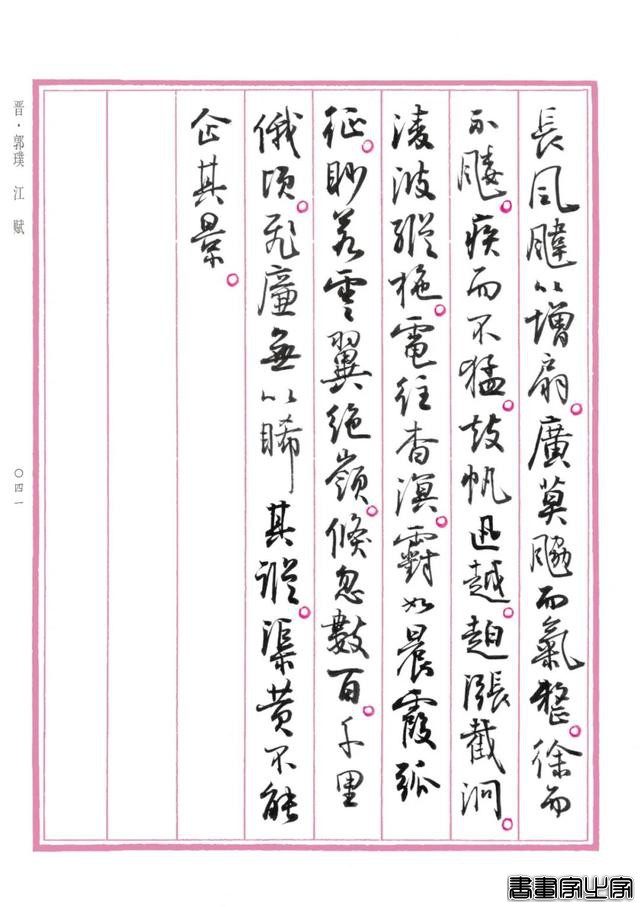 長風颹以增扇。廣莫䬅而氣整。徐而
不䬐。疾而不猛。鼓帆迅越。趠漲截泂。
淩波縱柂。電往杳溟。䨴如晨霞孤
征。眇若雲翼絕嶺。倏忽數百。千里
俄頃。飛廉無以睎其蹤。渠黃不能
企其景。
晋·郭璞 江賦
〇四一
書畫字中字